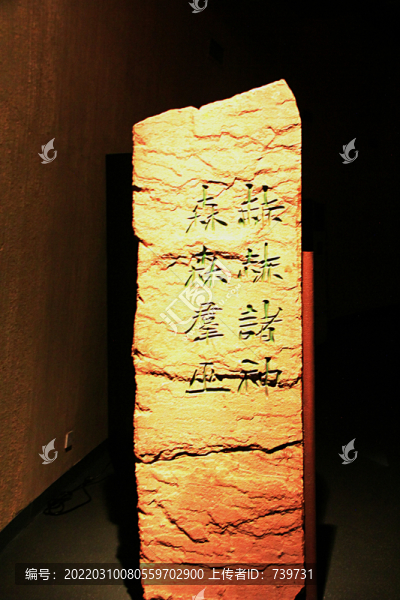 赫赫諸神
森森羣巫
编号：20220310080559702900 上传者ID：739731